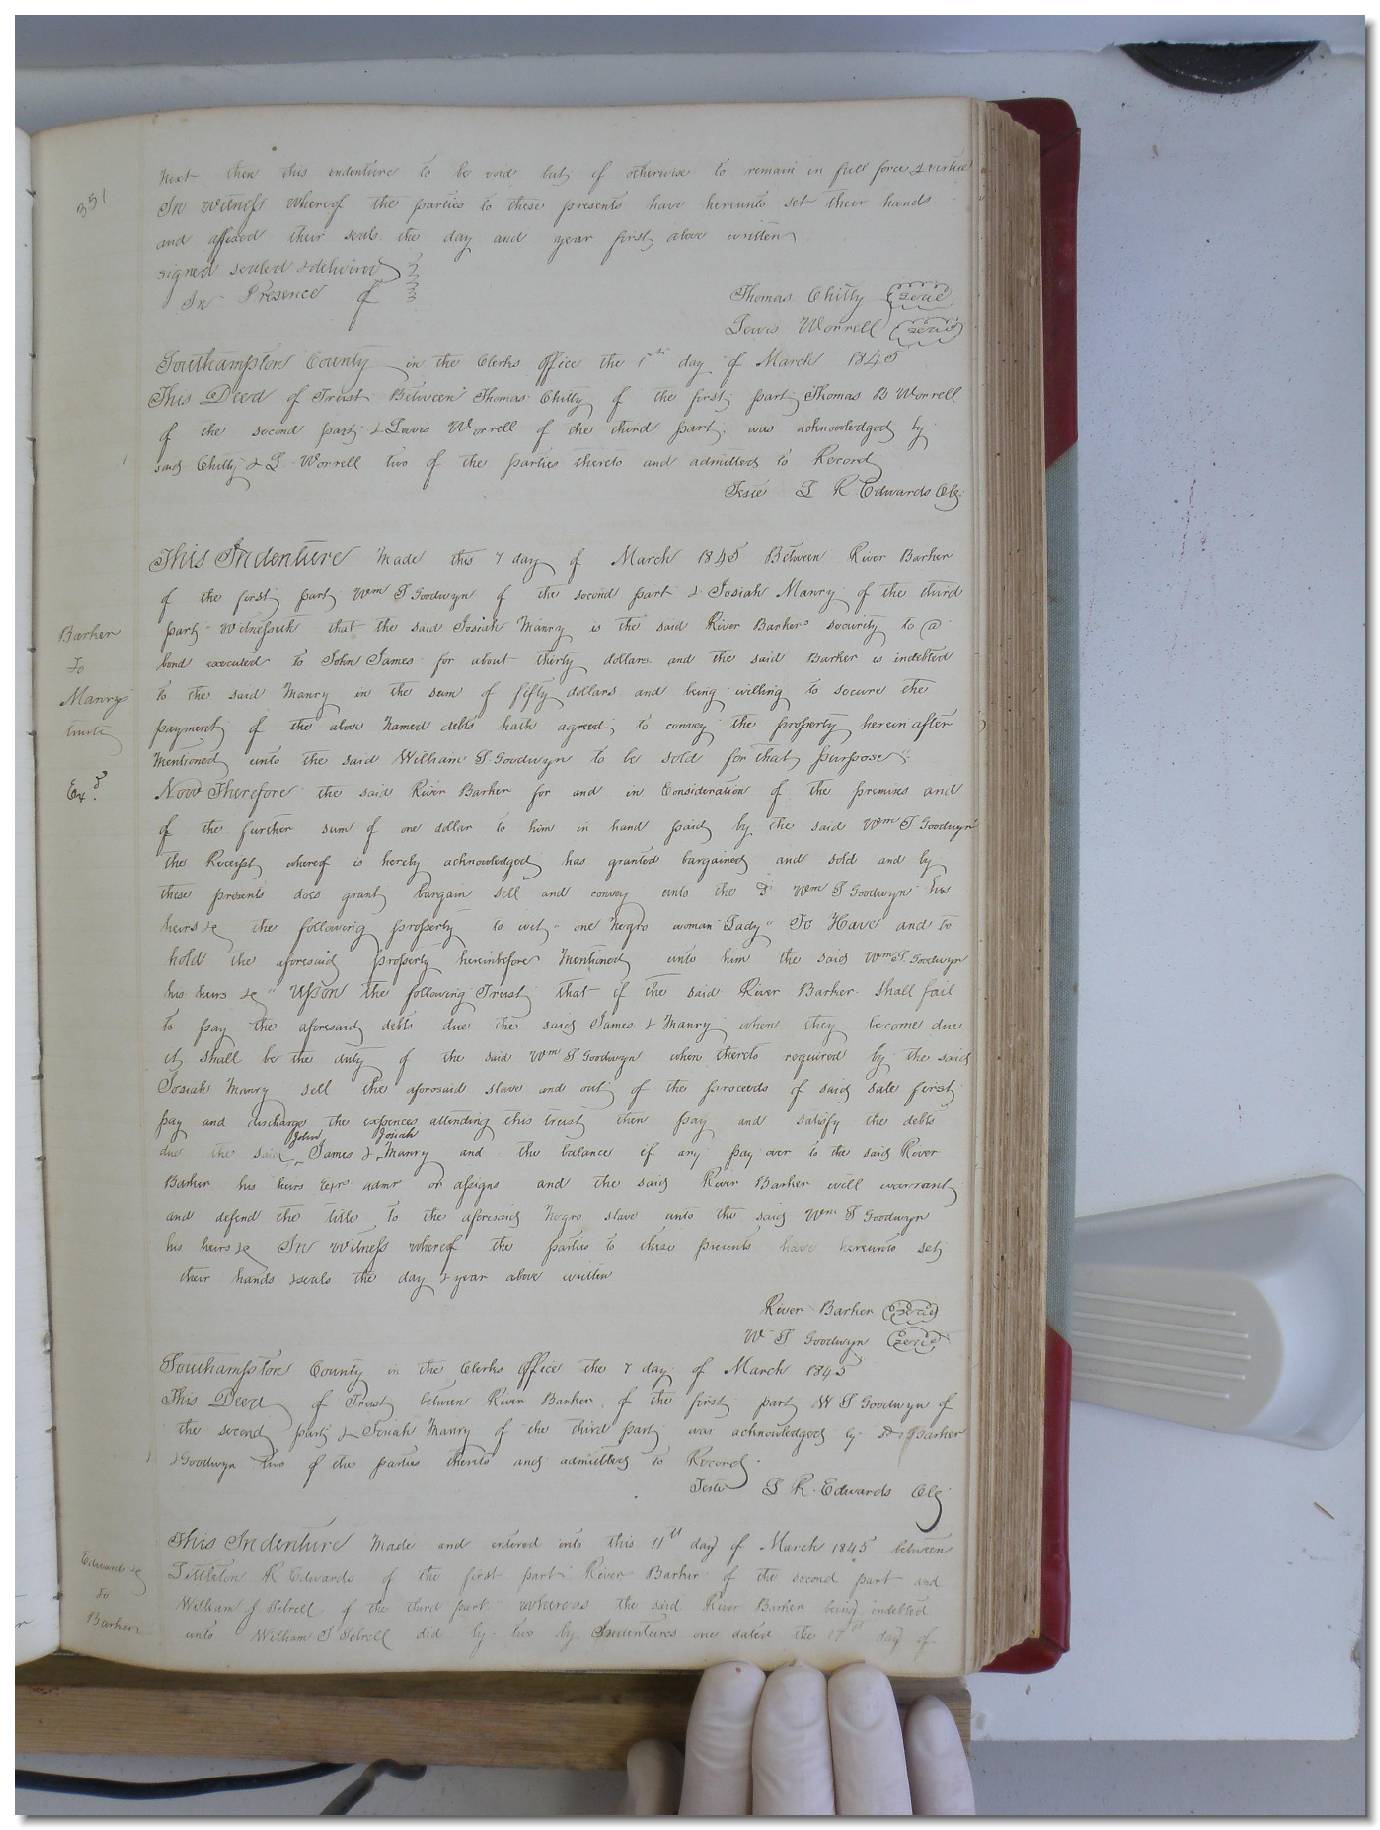 351
next then this indenture to be void but if otherwise to remain in full force & virtue
In witness whereof the parties to these presents have hereunto set their hands
and affixed their seals the day and year first above written
signed sealed & delivered
In Presence of
Thomas Chitty seal
Lewis Worrell seal
Southampton County in the Clerks office the 1st day of March 1845
This Deed of Trust Between Thomas Chitty of the first part Thomas B Worrell
of the second part & Lewis Worrell of the third part was acknowledged by
said Chitty & L Worrell two of the parties thereto and admitted to Record
Teste L R Edwards Clk
This Indenture made this 7 day of March 1845 Between River Barker
of the first part Wm T Goodwyn of the second part & Josiah Manry of the third
Barker
To
Manry
trust
Exd
part Witnesseth that the said Josiah Manry is the said River Barkers security to a
bond executed to John James for about thirty dollars and the said Barker is indebted
to the said Manry in the sum of fifty dollars and being willing to secure the
payment of the above named debts hath agreed to convey the property herein after
mentioned unto the said William T Goodwyn to be sold for that purpose
Now Therefore the said River Barker for and in Consideration of the premises and
of the further sum of one dollar to him in hand paid by the said Wm T Goodwyn
the Receipt whereof is hereby acknowledged has granted bargained and sold and by
these presents does grant bargain sell and convey unto the sd Wm T Goodwyn his
heirs &c the following property to wit one Negro woman "Lady" To Have and to
hold the aforesaid property hereinbefore mentioned unto him the said Wm T. Goodwyn
his heirs &c "Upon the following Trust that if the said River Barker shall fail
to pay the aforesaid debts due the said James & Manry when they become due
it shall be the duty of the said Wm T Goodwyn when thereto required by the said
Josiah Manry sell the aforesaid slave and out of the proceeds of said sale first
pay and discharge the expences attending this trust then pay and satisfy the debts
due the said John James & Josiah Manry and the balance if any pay over to the said River
Barker his heirs Exrs admr or assigns and the said River Barker will warrant
and defend the title to the aforesaid Negro slave unto the said Wm T Goodwyn
his heirs &c In witness whereof the parties to these presents have hereunto set
their hands & seals the day & year above written
River Barker seal
W T Goodwyn seal
Southampton County in the Clerks office the 7 day of March 1845
This Deed of Trust between River Barker of the first part W T Goodwyn of
the second part & Josiah Manry of the third part was acknowledged by Barker
& Goodwyn two of the parties thereto and admitted to Record.
Teste L R. Edwards Clk
Edwards &c
To
Barker
This Indenture made and entered into this 11th day of March 1845 between
Littleton R Edwards of the first part River Barker of the second part and
William J Sebrell of the third part whereas the said River Barker being indebted
unto William J Sebrell did by two by Indentures one dated the day of